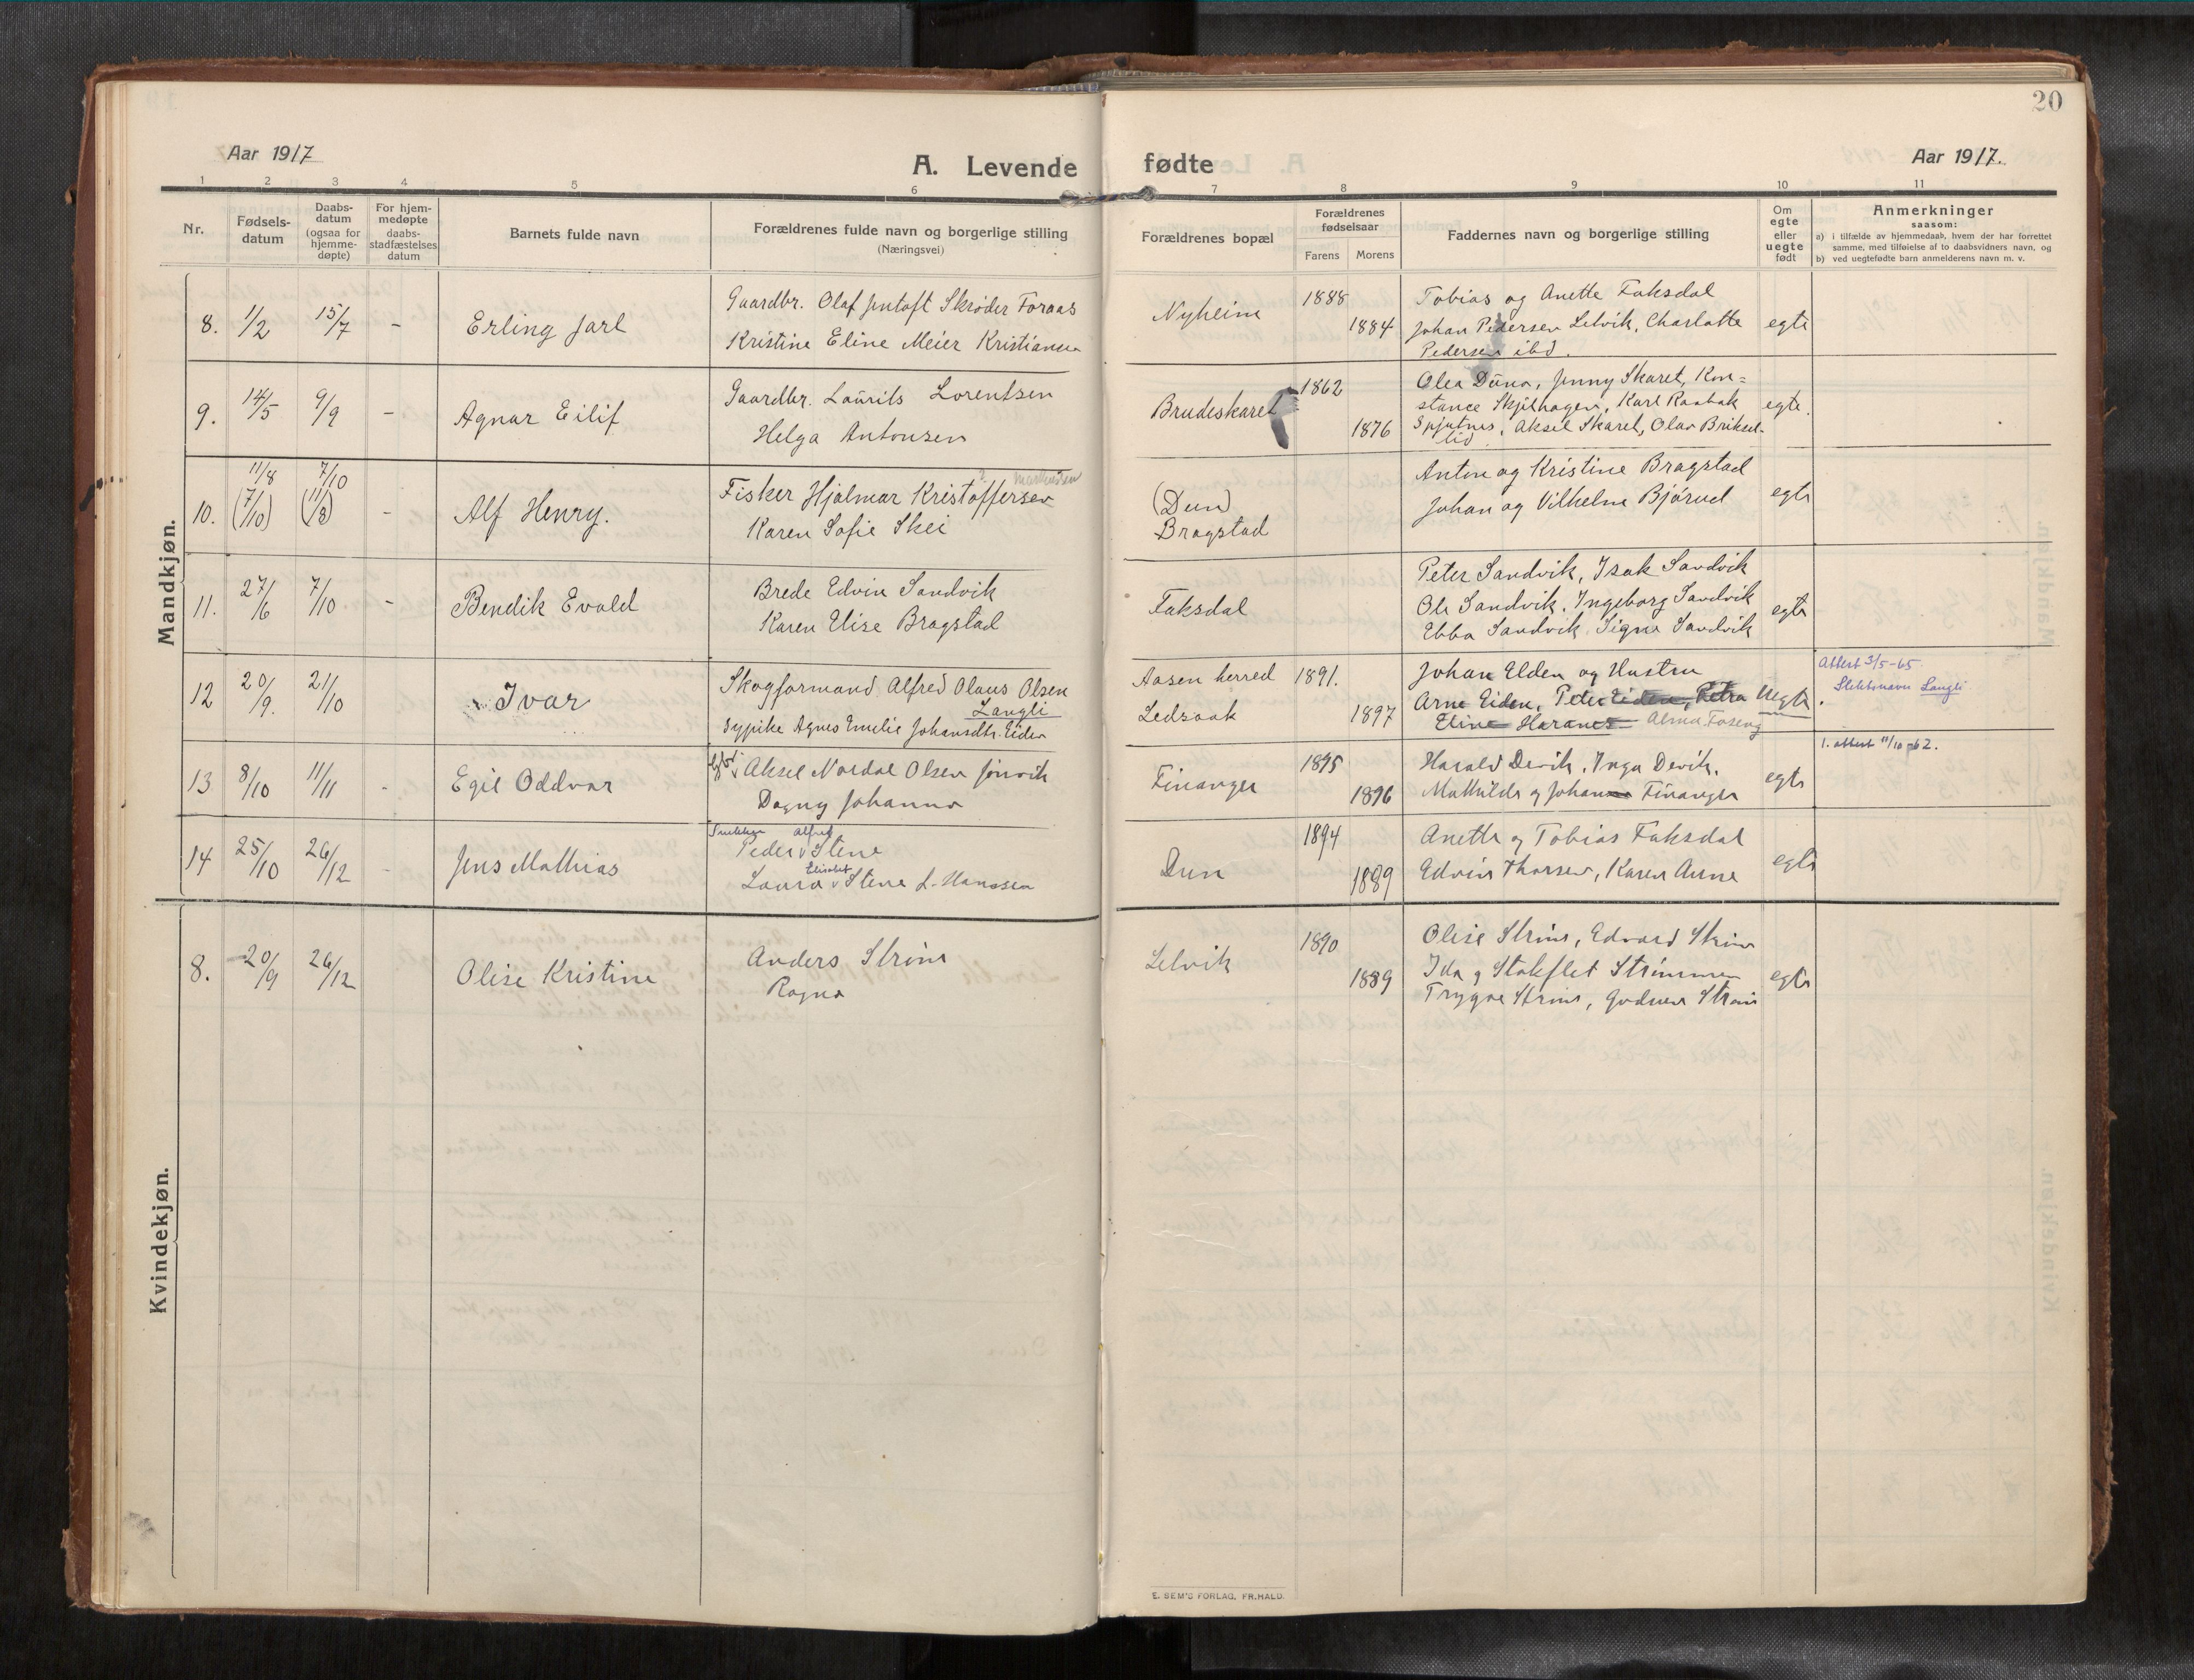 20
Aar 1917
A. Levende fødte
Aar 1917.
1 2 3 4 5 6 7 8 9 10 11
Nr.
Fødsels-
datum
Daabs-
datum
(ogsaa for
hjemme-
døpte)
For hjem-
medøpte
daabs-
stadfæstelses
datum
Barnets fulde navn
Forældrenes fulde navn og borgerlige stilling
(Næringsvei)
Forældrenes bopæl
Forældrenes
fødselsaar
Farens Morens
Faddernes navn og borgerlige stilling
Om
egte
eller
uegte
født
Anmerkninger
saasom:
a) i tilfælde av hjemmedaab, hvem der har forrettet
samme, med tilføielse af to daabsvidners navn, og
b) ved uegtefødte barn anmelderens navn m. v.
Mandkjøn.
8. 1/2 15/7 - Erling Jarl
Gaardbr. Olaf Jentoft Skrøder Foraas
Kristine Eline Meier Kristiansen
Nyheim
1888
1884
Tobias og Anette Faksdal
Johan Pedersen Lelvik, Charlotte
Pedersen ibd.
egte
9. 14/5 9/9 - Agnar Eilif
Gaardbr. Laurits Lorentsen
Helga Antonsen
Brudeskaret
1862
1876
Olea Duna, Jenny Skaret, Kon=
stance Skjilhagen, Karl Raabak
Spjutnes, Aksel Skaret, Olav Briksel-
lid
egte.
10. 11/8 (7/10) 7/10 (11/8) - Alf Henry.
Fisker Hjalmar Kristoffersen
Karen Sofie Skei
(Dun)
Bragstad
Anton og Kristine Bragstad
Johan og Vilhelm Bjørud
egte
11. 27/6 7/10 - Bendik Evald
Brede Edvin Sandvik
Karen Elise Bragstad
Faksdal
Peter Sandvik, Isak Sandvik
Ole Sandvik, Ingeborg Sandvik
Ebba Sandvik, Signe Sandvik
egte
12 20/9. 21/10 Ivar
Skogformand Alfred Olaus Olsen
Langli
Sypike Agnes Emelie Johansdtr. Eiden
Aasen herred
Ledsaak
1891.
1897
Johan Elden og Hustru
Arne Eiden, Peter Eiden, Petra
Eline Haranes Alma Foseng
Uegte
Attest 3/5-65
Slektsnavn Langli
13 8/10 11/11 - Egil Oddvar
Aksel Nordal Olsen Jønvik
Dagny Johanna
Finanger
1895
1896
Harald Devik, Inga Devik,
Mathilde og Johanne Finanger
egte
1. attest 11/10-62.
14 25/10 26/12 - Jens Mathias
Alfred
Peder Stene
Elisabet
Laura Stene f. Hanssen
Dun
1894
1889
Anette og Tobias Faksdal
Edvin Thorsen, Karen Aune
egte
Kvindekjøn.
8. 20/9 26/12 Olise Kristine
Anders Strøm
Ragna
Lelvik
1890
1889
Olise Strøm, Edvard Strøm
Ida og Stokflet Strømmen
Trygve Strøm, Gudrun Strøm
egte
E. SEM'S FORLAG, FR.HALD.